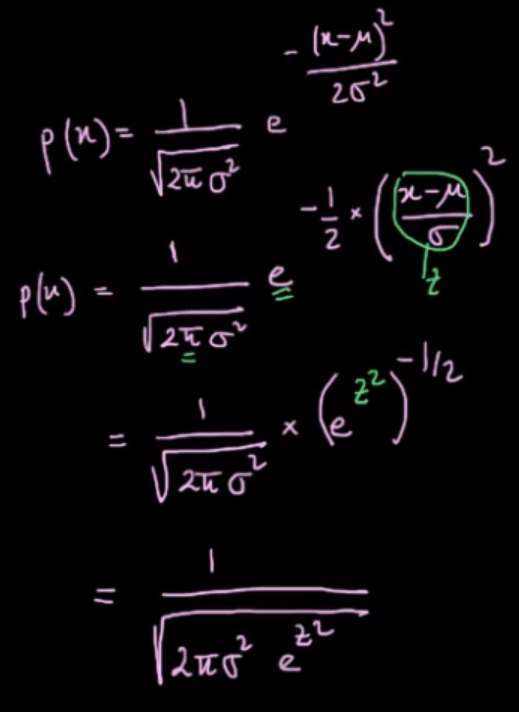 p(x) = 1/√(2πσ²) e^(-(x-μ)²/2σ²)
p(x) = 1/√(2πσ²) e^(-1/2 × ((x-μ)/σ)²)
z
= 1/√(2πσ²) × (e^(z²))^(-1/2)
= 1/√(2πσ² e^(z²))